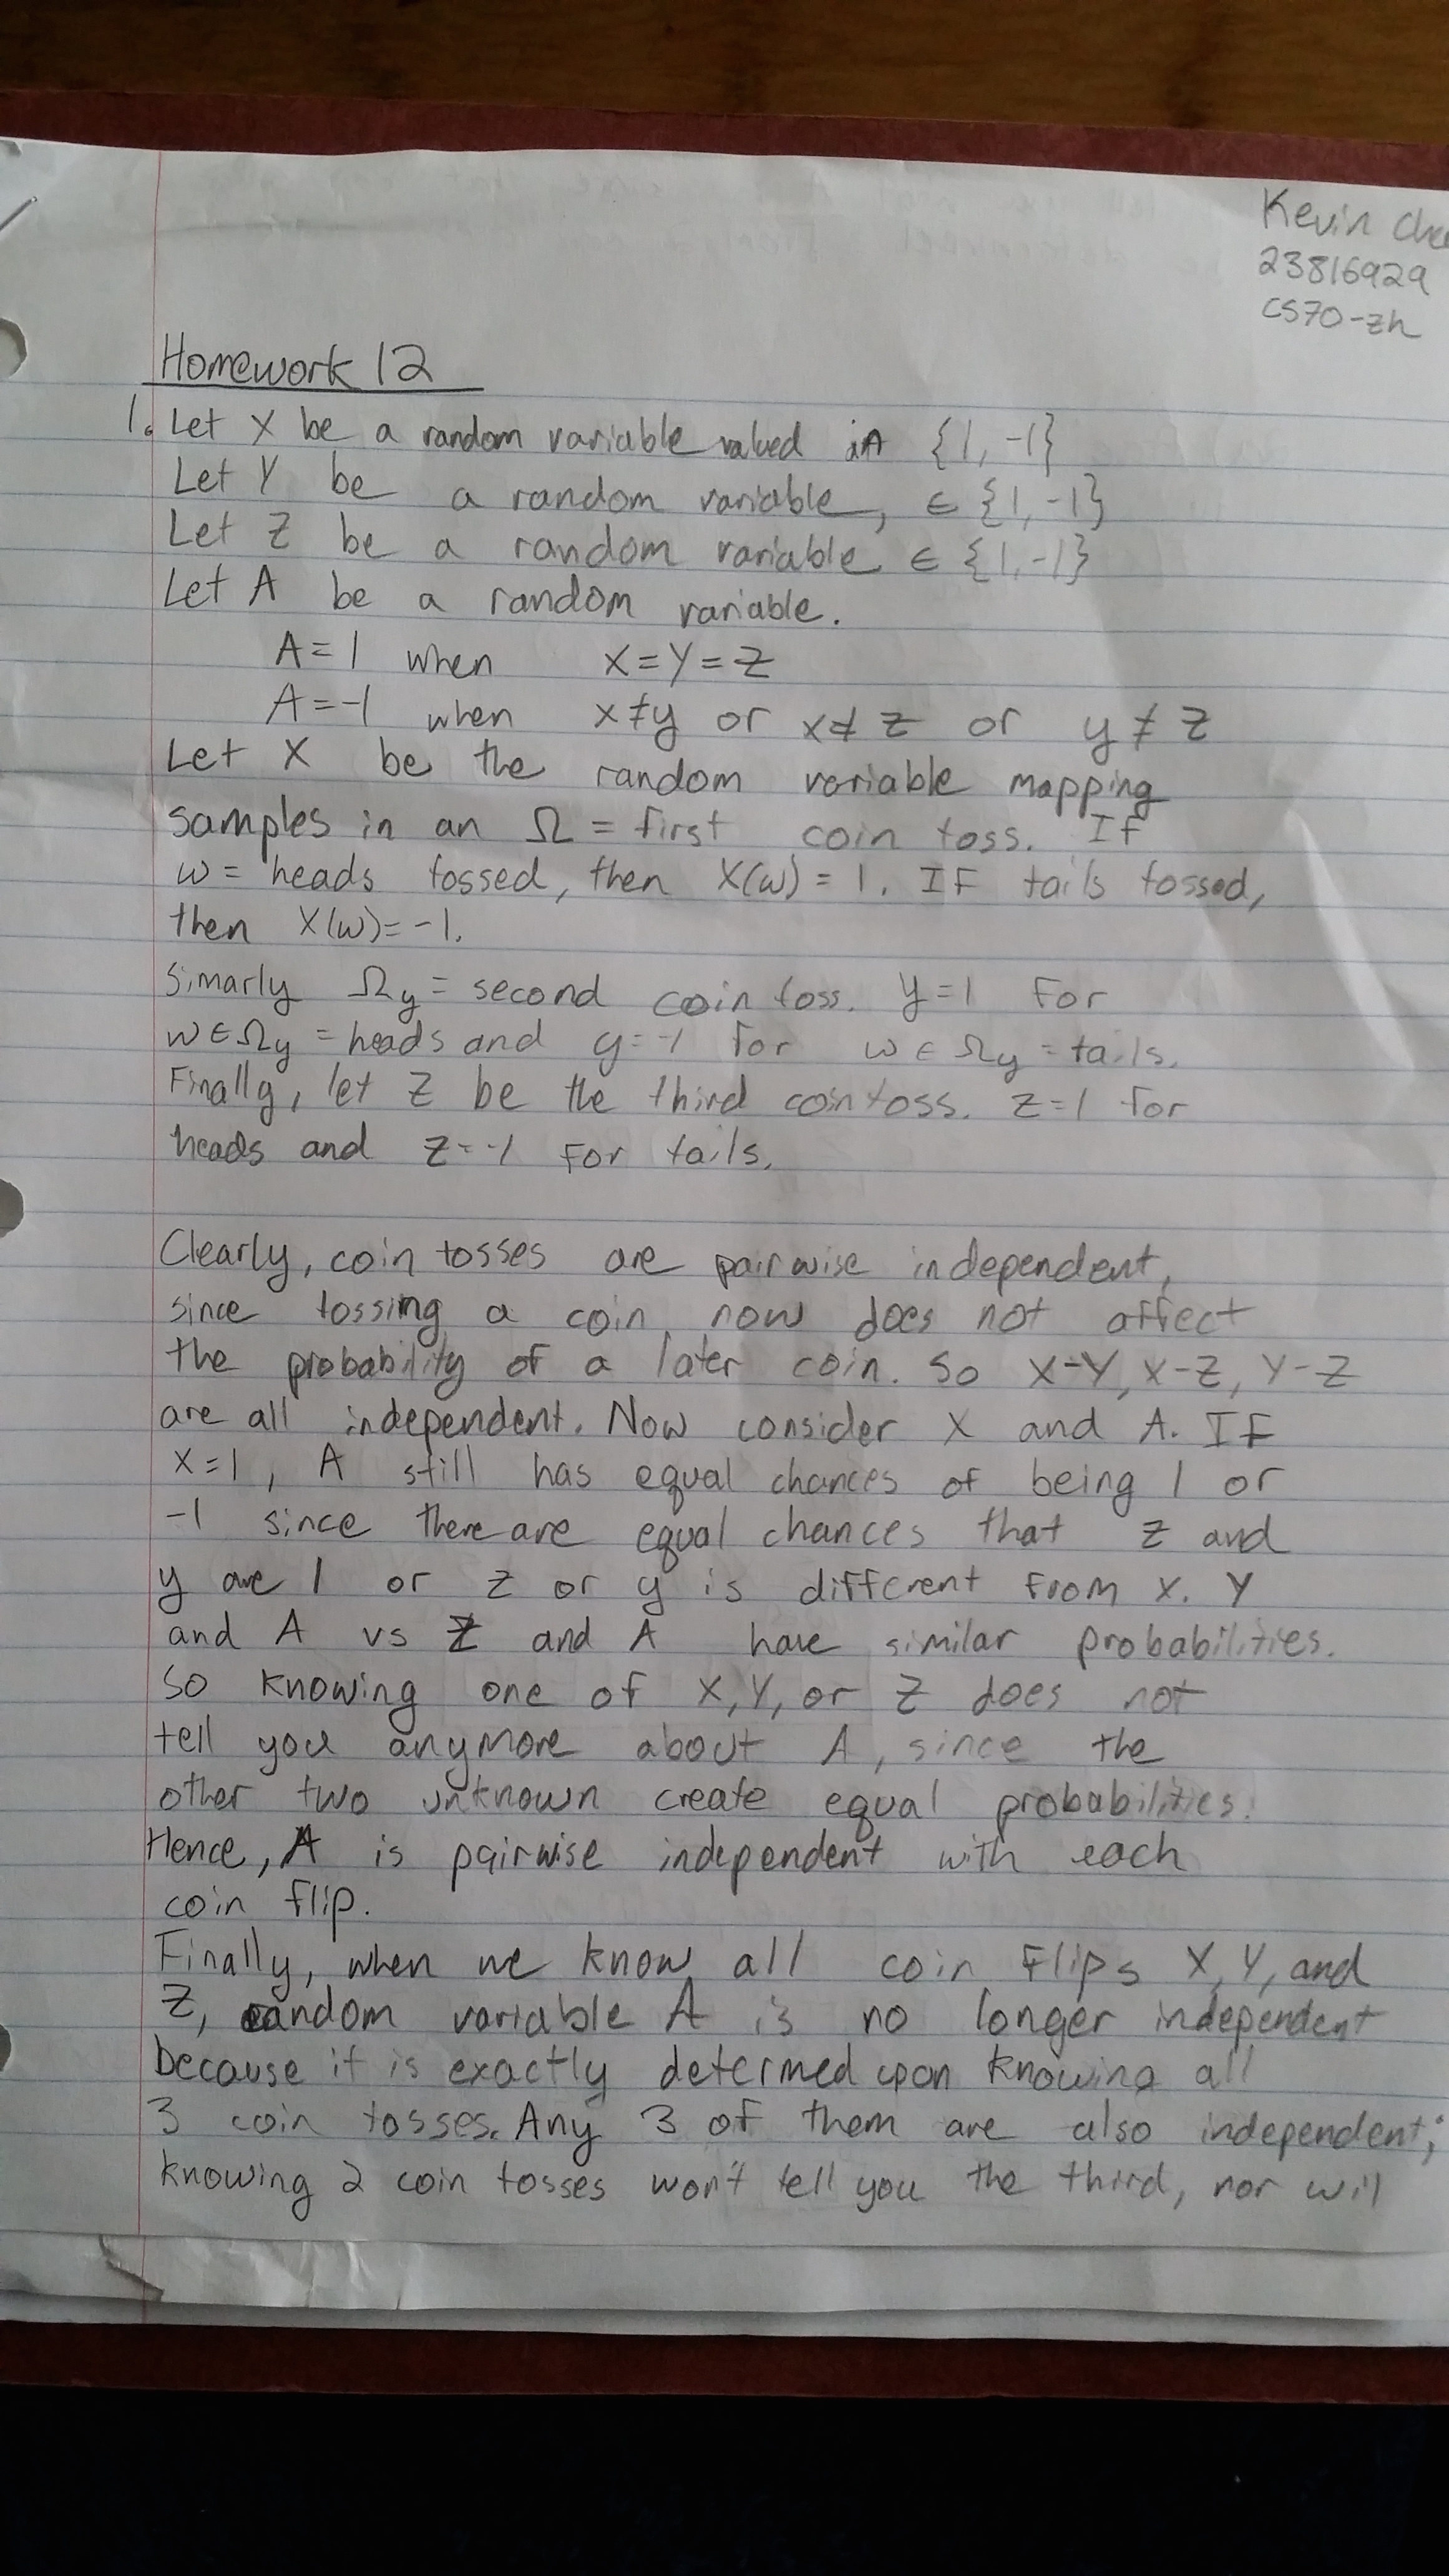 Kevin Che
23816929
CS70-zh
Homework 12
1. Let X be a random variable valued in {1, -1}
Let Y be a random variable, ∈ {1, -1}
Let Z be a random variable ∈ {1, -1}
Let A be a random variable.
A = 1 when X = Y = Z
A = -1 when x ≠ y or x ≠ z or y ≠ z
Let X be the random variable mapping
samples in an Ω = first coin toss. If
ω = heads tossed, then X(ω) = 1. If tails tossed,
then X(ω) = -1.
Simarly Ωy = second coin toss. y = 1 for
ω ∈ Ωy = heads and y = -1 for ω ∈ Ωy = tails.
Finally, let Z be the third coin toss. z = 1 for
heads and z = -1 for tails.
Clearly, coin tosses are pairwise independent,
since tossing a coin now does not affect
the probability of a later coin. So X-Y, X-Z, Y-Z
are all independent. Now consider X and A. If
X = 1, A still has equal chances of being 1 or
-1 since there are equal chances that z and
y are 1 or z or y is different from x. Y
and A vs Z and A have similar probabilities.
So knowing one of X, Y, or Z does not
tell you anymore about A, since the
other two unknown create equal probabilities.
Hence, A is pairwise independent with each
coin flip.
Finally, when we know all coin flips X, Y, and
Z, random variable A is no longer independent
because it is exactly determed upon knowing all
3 coin tosses. Any 3 of them are also independent;
knowing 2 coin tosses won't tell you the third, nor will